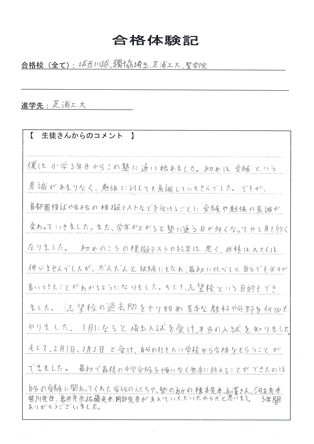 合格体験記
合格校(全て): 城西川越、獨協埼玉、芝浦工大、聖学院
進学先: 芝浦工大
【 生徒さんからのコメント 】
僕は小学3年生からこの塾に通い始めました。初めは受験という
意識があまりなく、勉強に対しても意識していませんでした。ですが、
首都圏模試や合不合の模擬テストなどを受けるごとに受験や勉強の意識が
変わっていきました。また、学年が上がると塾に通う日が多くなってやる事も多く
なりました。初めのころの模擬テストの結果は悪く、成績は大きくは
伸びませんでしたが、だんだんと試験にもなれ、最初に比べて自分でも実力が
着いてきたことがわかるようになりました。そして、志望校という目的もでき
ました。志望校の過去問をやり始め苦手な教科や分野を何回も
やりました。1月になると埼玉入試を受け、本当の入試を知りました。
そして、2月1日、2月2日と受け、自分の行きたい学校から合格をもらうことが
できました。最初で最後の中学受験を悔いなく無事に終えることができたのは
自分の受験に関わってくれた家族の人たちや、塾の
先生が支えていただいたからだと思います。3年間
ありがとうございました。